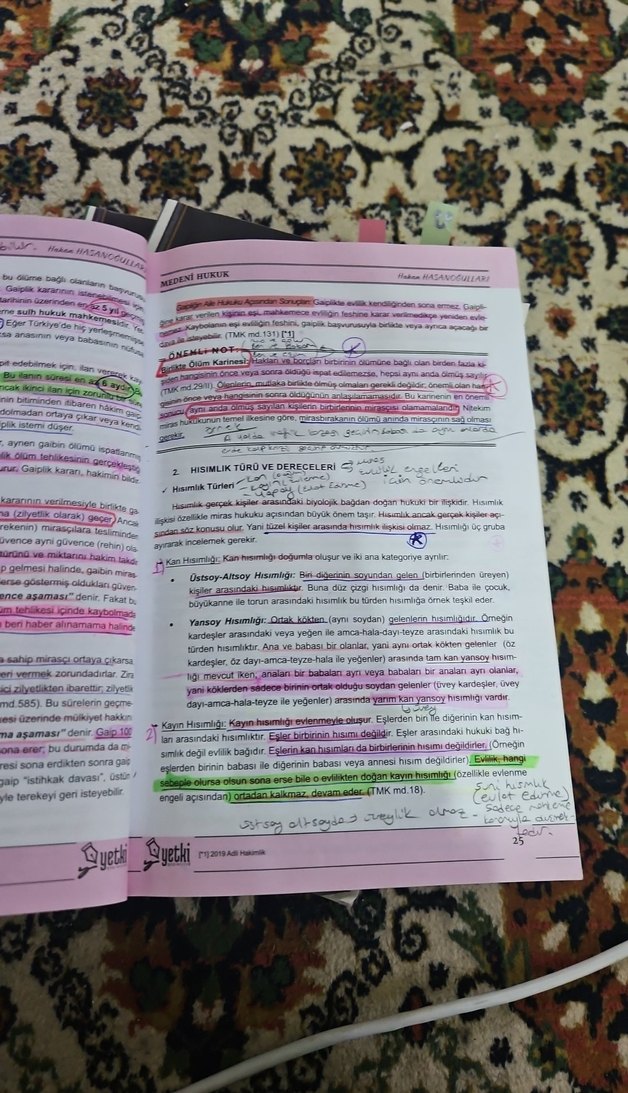 Hakan HASANOĞULLARI
bu ölüme bağlı olanların başvurusu
Gaiplik kararının istenebilmesi için
tarihinin üzerinden en az 5 yıl geçmiş
sulh hukuk mahkemesidir.
Eğer Türkiye'de hiç yerleşmemişse
sa anasının veya babasının nüfusa
pit edebilmek için, ilan vererek
Bu ilanın süresi en az 6 aydır.
ncak ikinci ilan için zorunlu bir
nin bitiminden itibaren hâkim gaip
dolmadan ortaya çıkar veya kendi
plik istemi düşer.
, aynen gaibin ölümü ispatlanmış
ölüm tehlikesinin gerçekleştiği
urur. Gaiplik kararı, hakimin bildir
kararının verilmesiyle birlikte ga
(zilyetlik olarak) geçer. Ancak
rekenin) mirasçılara tesliminden
üvence ayni güvence (rehin) ola
türünü ve miktarını hakim takdir
p gelmesi halinde, gaibin miras-
erse göstermiş oldukları güven-
ence aşaması" denir. Fakat bu
üm tehlikesi içinde kaybolmada
beri haber alınamama halinde
a sahip mirasçı ortaya çıkarsa
eri vermek zorundadırlar. Zira
ici zilyetlikten ibarettir; zilyetlik
md.585). Bu sürelerin geçme
esi üzerinde mülkiyet hakkın
ma aşaması" denir. Gaip 100
sona erer; bu durumda da mi-
resi sona erdikten sonra gaip
gaip "istihkak davası", üstün
yle terekeyi geri isteyebilir.
yetki
MEDENİ HUKUK
Hakan HASANOĞULLARI
Gaipliğin Aile Hukuku Açısından Sonuçları: Gaiplikte evlilik kendiliğinden sona ermez. Gaipli-
ğine karar verilen kişinin eşi, mahkemece evliliğin feshine karar verilmedikçe yeniden evle-
nemez. Kaybolanın eşi evliliğin feshini, gaiplik başvurusuyla birlikte veya ayrıca açacağı bir
dava ile isteyebilir. (TMK md.131) [*1]
ÖNEMLİ NOT:
Birlikte Ölüm Karinesi: Hakları ve borçları birbirinin ölümüne bağlı olan birden fazla ki-
şiden hangisinin önce veya sonra öldüğü ispat edilemezse, hepsi aynı anda ölmüş sayılır
(TMK md.29/II). Ölenlerin, mutlaka birlikte ölmüş olmaları gerekli değildir; önemli olan han-
gisinin önce veya hangisinin sonra öldüğünün anlaşılamamasıdır. Bu karinenin en önemli
sonucu, aynı anda ölmüş sayılan kişilerin birbirlerinin mirasçısı olamamalarıdır. Nitekim
miras hukukunun temel ilkesine göre, mirasbırakanın ölümü anında mirasçının sağ olması
gerekir.
2. HISIMLIK TÜRÜ VE DERECELERİ
→ miras
evlilik engelleri
için önemlidir
✓ Hısımlık Türleri
- kan
- yapay (evlat edinme)
Hısımlık gerçek kişiler arasındaki biyolojik bağdan doğan hukuki bir ilişkidir. Hısımlık
ilişkisi özellikle miras hukuku açısından büyük önem taşır. Hısımlık ancak gerçek kişiler açı-
sından söz konusu olur. Yani tüzel kişiler arasında hısımlık ilişkisi olmaz. Hısımlığı üç gruba
ayırarak incelemek gerekir.
1) Kan Hısımlığı: Kan hısımlığı doğumla oluşur ve iki ana kategoriye ayrılır:
• Üstsoy-Altsoy Hısımlığı: Biri diğerinin soyundan gelen (birbirlerinden üreyen)
kişiler arasındaki hısımlıktır. Buna düz çizgi hısımlığı da denir. Baba ile çocuk,
büyükanne ile torun arasındaki hısımlık bu türden hısımlığa örnek teşkil eder.
• Yansoy Hısımlığı: Ortak kökten (aynı soydan) gelenlerin hısımlığıdır. Örneğin
kardeşler arasındaki veya yeğen ile amca-hala-dayı-teyze arasındaki hısımlık bu
türden hısımlıktır. Ana ve babası bir olanlar, yani aynı ortak kökten gelenler (öz
kardeşler, öz dayı-amca-teyze-hala ile yeğenler) arasında tam kan yansoy hısım-
lığı mevcut iken; anaları bir babaları ayrı veya babaları bir anaları ayrı olanlar,
yani köklerden sadece birinin ortak olduğu soydan gelenler (üvey kardeşler, üvey
dayı-amca-hala-teyze ile yeğenler) arasında yarım kan yansoy hısımlığı vardır.
↳ üvey
2) Kayın Hısımlığı: Kayın hısımlığı evlenmeyle oluşur. Eşlerden biri ile diğerinin kan hısım-
ları arasındaki hısımlıktır. Eşler birbirinin hısımı değildir. Eşler arasındaki hukuki bağ hı-
sımlık değil evlilik bağıdır. Eşlerin kan hısımları da birbirlerinin hısımı değildirler. (Örneğin
eşlerden birinin babası ile diğerinin babası veya annesi hısım değildirler). Evlilik, hangi
sebeple olursa olsun sona erse bile o evlilikten doğan kayın hısımlığı (özellikle evlenme
engeli açısından) ortadan kalkmaz, devam eder. (TMK md.18).
suni hısımlık
(evlat edinme)
- sadece mahkeme
kararıyla
üstsoy altsoyda → üveylik olmaz
yetki
[*1] 2019 Adli Hakimlik
25